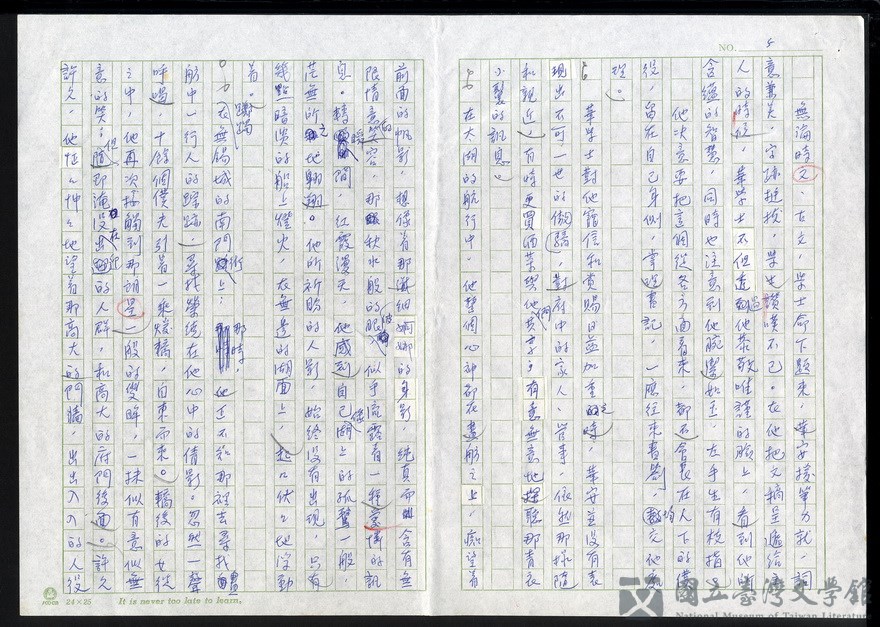 NO. 5
無論時文、古文，學士命下題來，華安援筆力就，詞
意兼美，字跡挺拔，學士讚嘆不已。在他把文稿呈遞給
人的時候，華學士不但遇到他恭敬唯謹的臉上，看到他
含蘊的智慧，同時也注意到他腕白如玉，左手生有枝指
他決意要把這個從各方面看來，都不會長在人下的僕
役，留在自己身側，掌理書記，一應往來書劄，均交他處
理。
華學士對他寵信和賞賜日益加重之時，華安並沒有表
現出不可一世的傲驕，對府中的家人、管事，依然那樣隨
和親近，有時更買酒菜與他們共享，有意無意地探聽那青衣
小鬟的訊息。
在太湖的航行中，他整個心神都在畫舫之上，癡望着
前面的帆影，想像着那纖細婀娜的身影，純真而含有無
限情意的笑容，那秋水般的眼波似乎流露有一種
息。轉瞬間，紅霞漫天，他感到自己像湖上的孤鶩一般，
茫無所之地翱翔。他所祈盼的人影，始終沒有出現，只有
幾點暗淡的船上燈火，在無邊的湖面上，起起伏伏地浮動
着。
在無錫城的南門街上，那時他正不知那裡去尋找畫
舫中一行人的踪跡，尋找縈繞在他心中的倩影。忽然一聲
呼喝，十餘個僕夫引着一乘煖轎，自東而來。轎後的女從
之中，他再次接觸到那朗星一般的雙眸，一抹似有意似無
意的笑，但隨即淹沒在迎的人群，和高大的府門後面。許久
許久，他怔怔忡忡地望着那高大的門牆，出出入入的人役
24×25
It is never too late to learn.
國立臺灣文學館
National Museum of Taiwan Literature